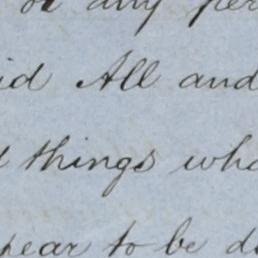 or any per
id All and
d things wha
pear to be d